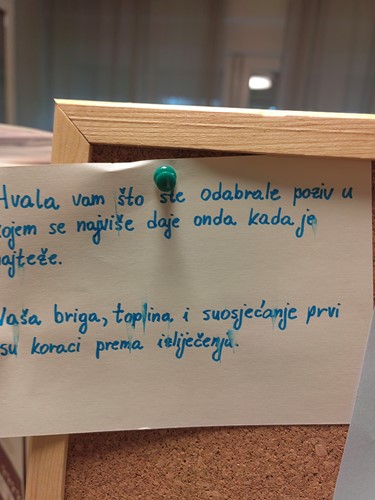 Hvala vam što ste odabrale poziv u
kojem se najviše daje onda kada je
najteže.
Vaša briga, toplina i suosjećanje prvi
su koraci prema izliječenju.